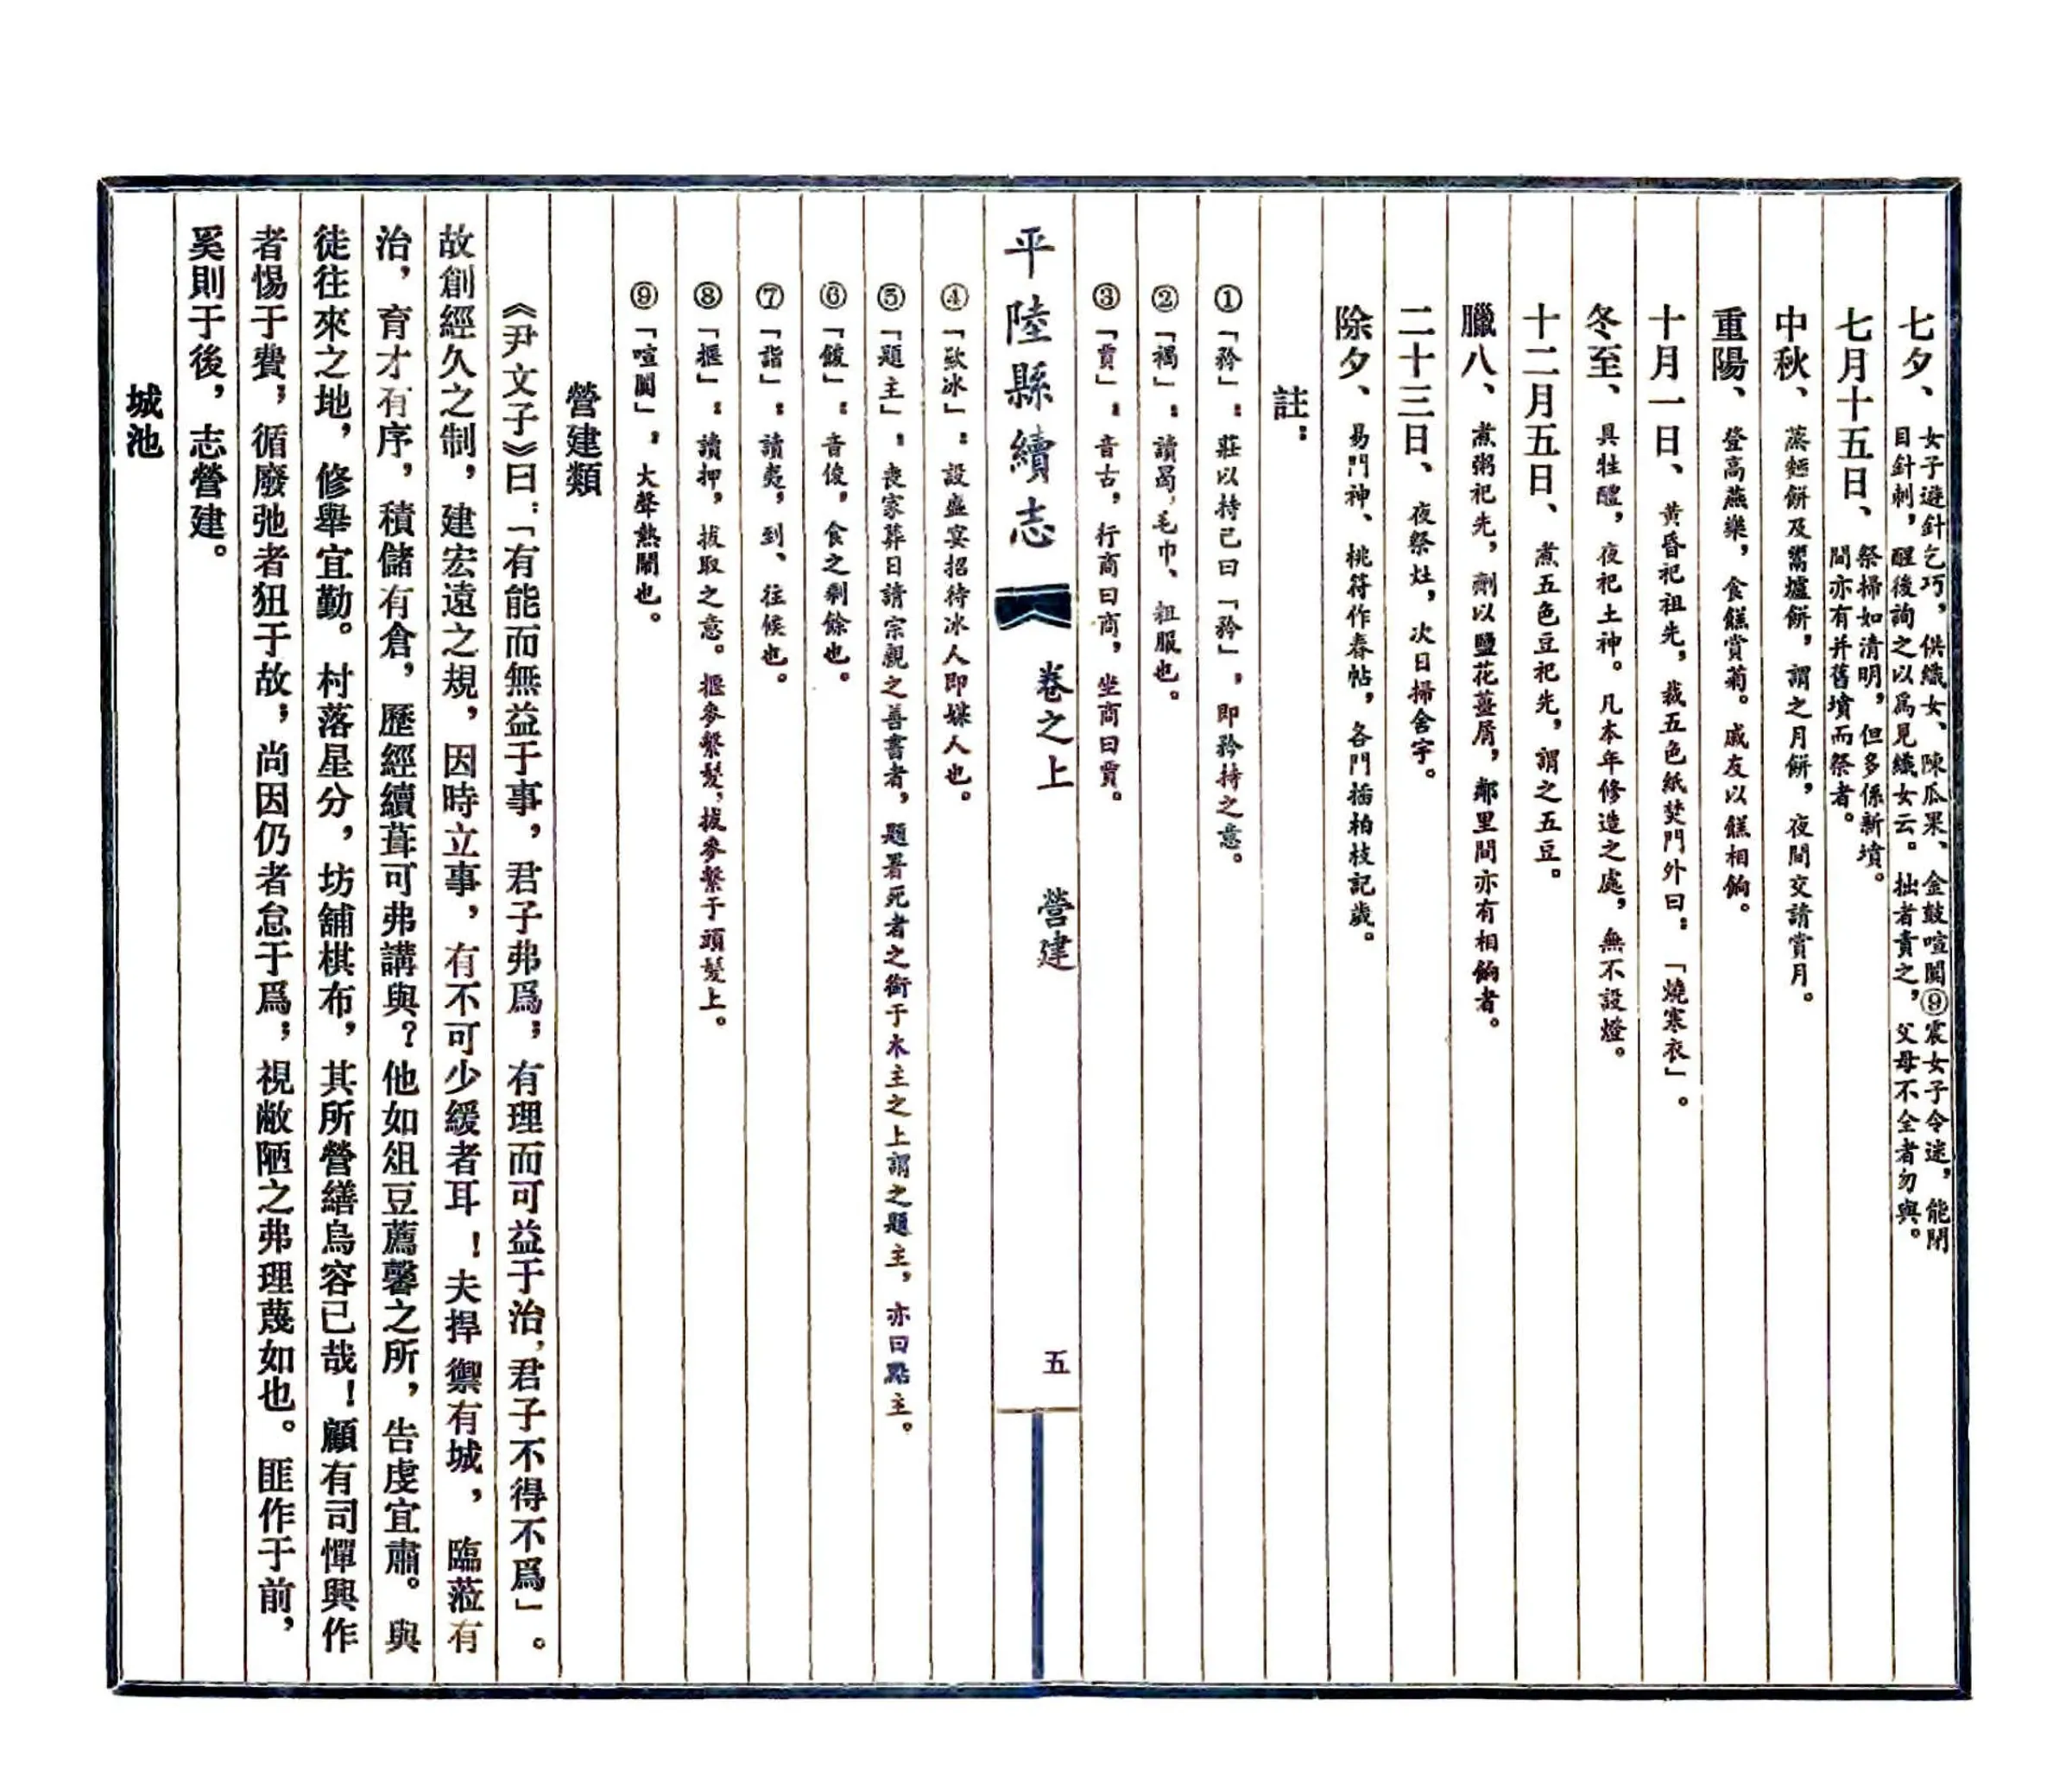 七夕、女子遊針乞巧，供織女、陳瓜果、金鼓喧闐⑨震女子令迷，能閉
目針刺，醒後詢之以爲見織女云。拙者責之，父母不全者勿與。
七月十五日、祭掃如清明，但多係新墳。
間亦有并舊墳而祭者。
中秋、蒸麵餅及罱爐餅，謂之月餅，夜間交請賞月。
重陽、登高燕樂，食餻賞菊。戚友以餻相餉。
十月一日、黃昏祀祖先，裁五色紙焚門外曰：「燒寒衣」。
冬至、具牲醴，夜祀土神。凡本年修造之處，無不設燈。
十二月五日、煮五色豆祀先，謂之五豆。
臘八、煮粥祀先，劑以鹽花薑屑，鄰里間亦有相餉者。
二十三日、夜祭灶，次日掃舍宇。
除夕、易門神、桃符作春帖，各門插柏枝記歲。
註：
①「矜」：莊以持己曰「矜」，即矜持之意。
②「褐」：讀曷，毛巾、粗服也。
③「賈」：音古，行商曰商，坐商曰賈。
平陸縣續志 卷之上 營建 五
④「歃冰」：設盛宴招待冰人即媒人也。
⑤「題主」：喪家葬日請宗親之善書者，題署死者之銜于木主之上謂之題主，亦曰點主。
⑥「餕」：音俊，食之剩餘也。
⑦「詣」：讀夷，到、往候也。
⑧「揠」：讀押，拔取之意。揠麥繫髮，拔麥繫于頭髮上。
⑨「喧闐」，大聲熱鬧也。
營建類
《尹文子》曰：「有能而無益于事，君子弗爲；有理而可益于治，君子不得不爲」。
故創經久之制，建宏遠之規，因時立事，有不可少緩者耳！夫捍禦有城，臨蒞有
治，育才有序，積儲有倉，歷經續葺可弗講與？他如俎豆薦馨之所，告虔宜肅。與
徒往來之地，修舉宜勤。村落星分，坊舖棋布，其所營繕烏容已哉！顧有司憚興作
者惕于費；循廢弛者狃于故；尚因仍者怠于爲；視敝陋之弗理蔑如也。匪作于前，
奚則于後，志營建。
城池